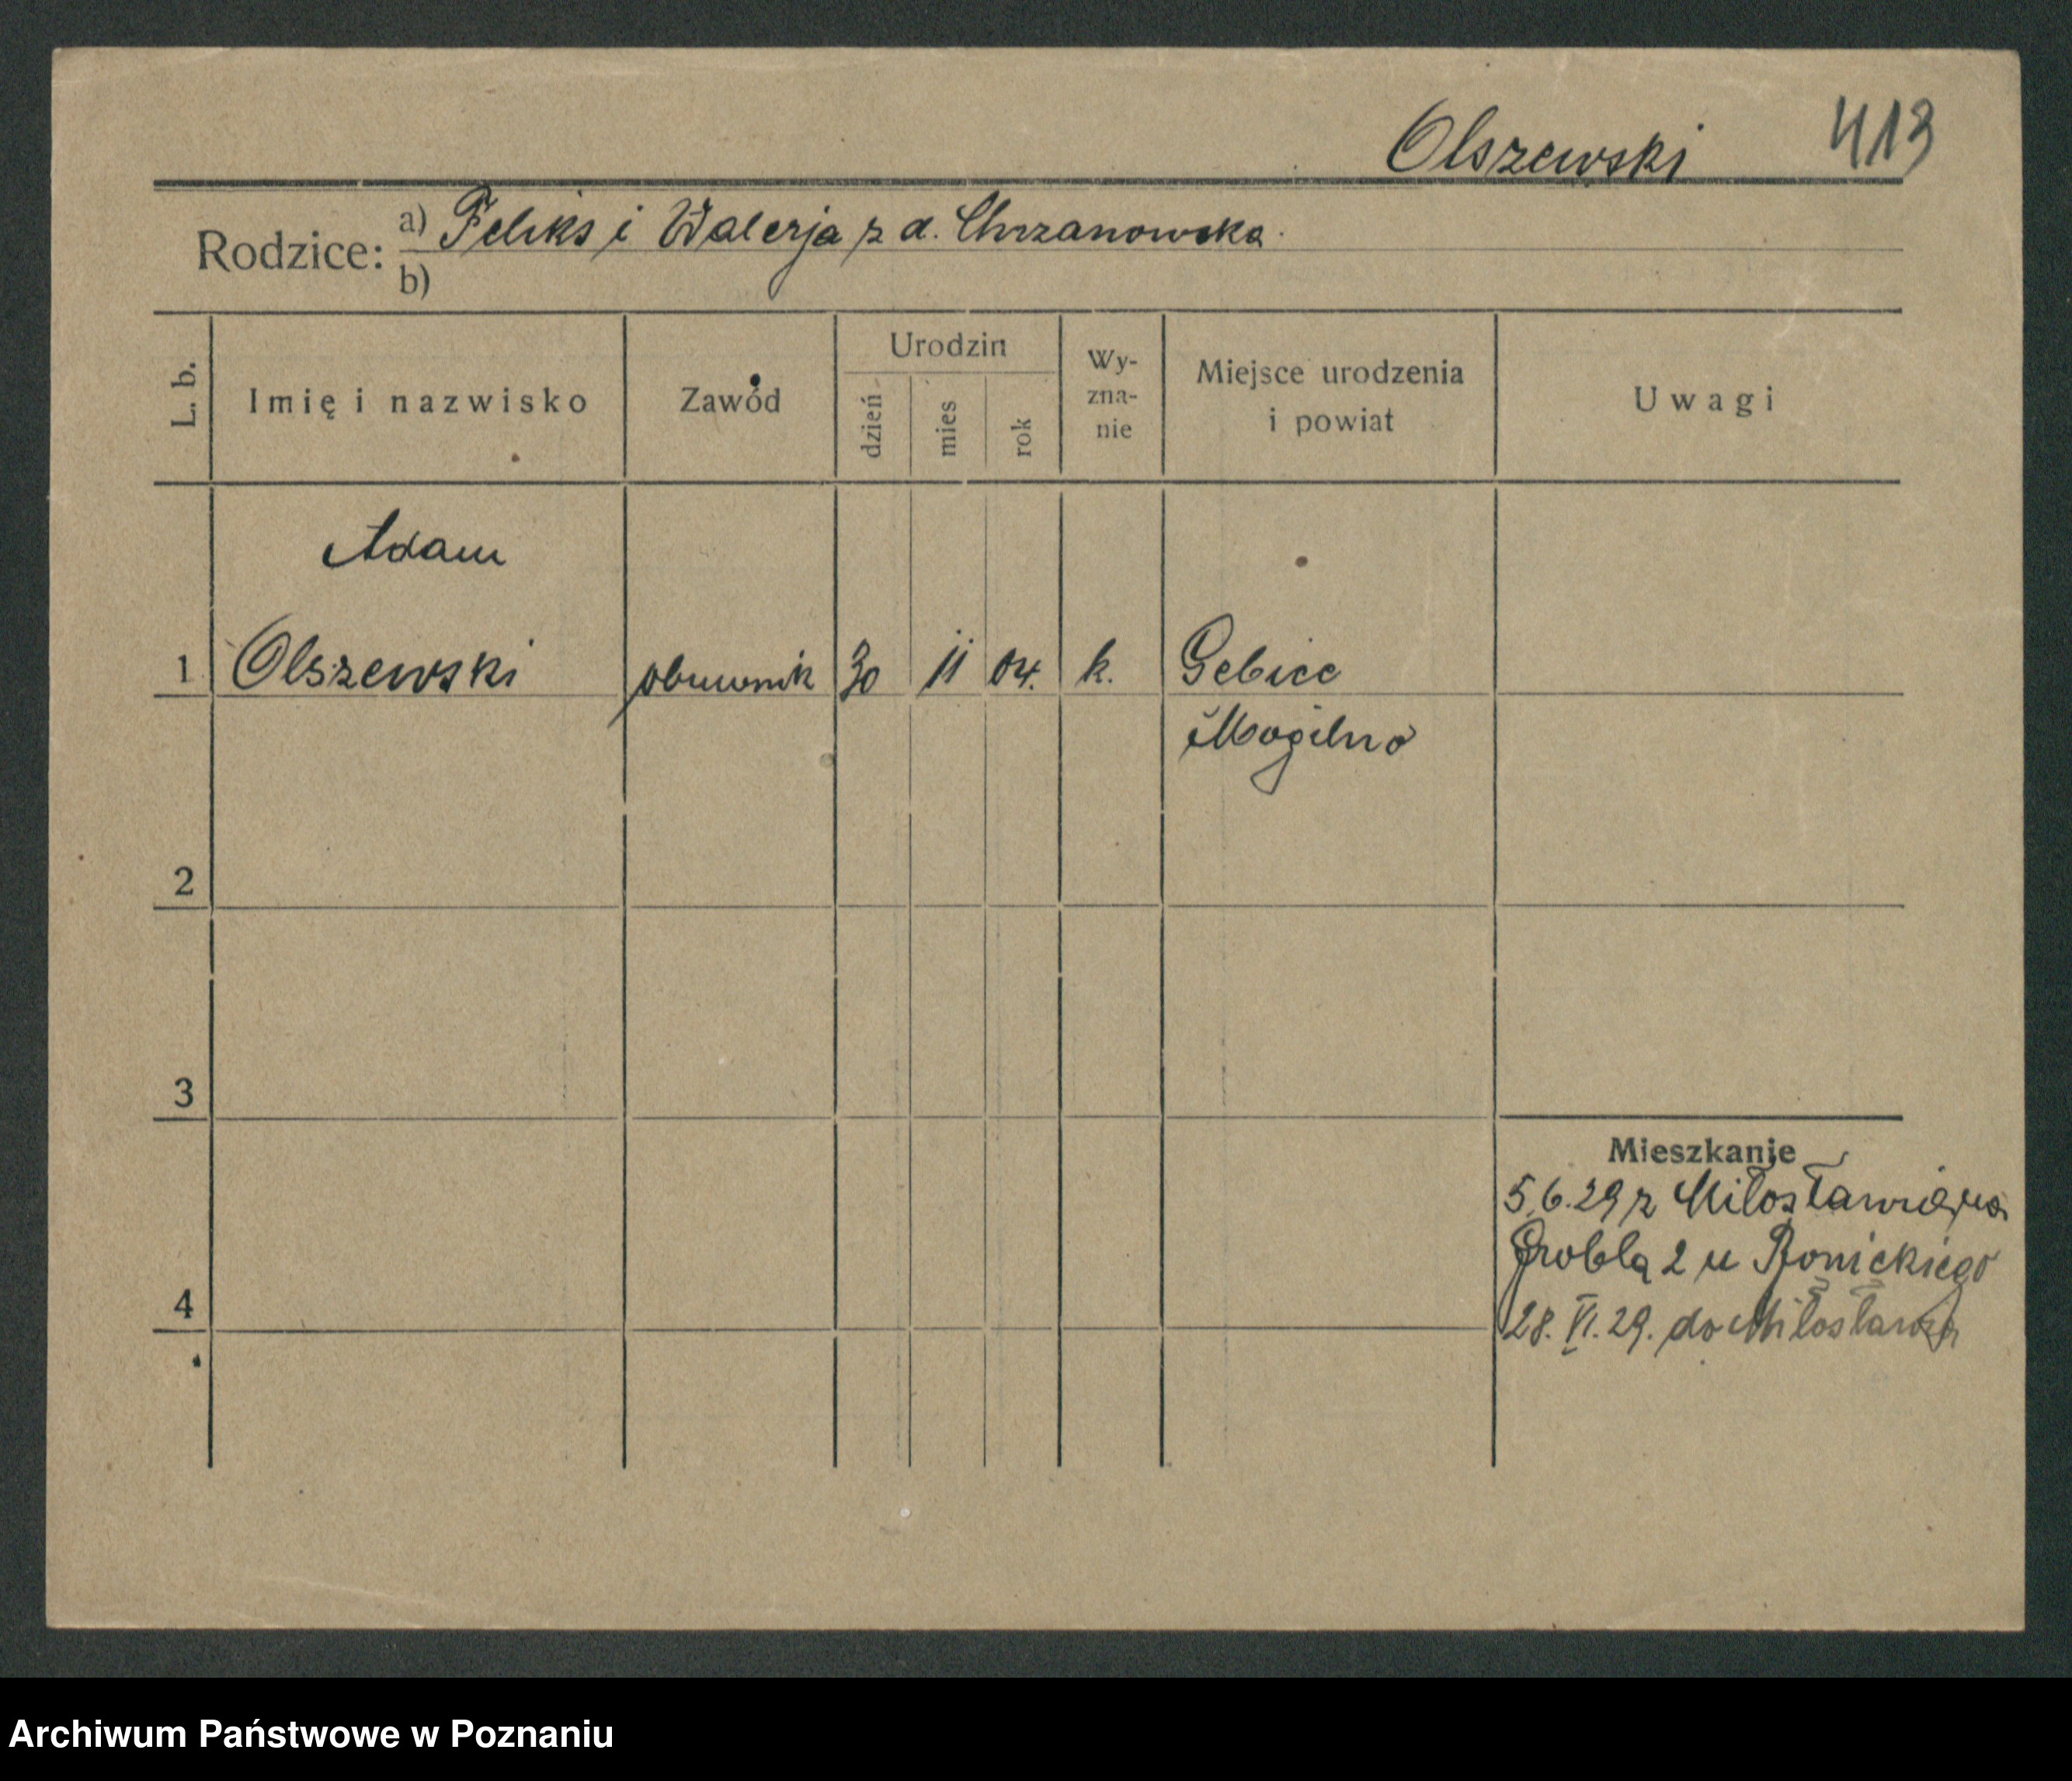 Olszewski 413
Rodzice: a) Feliks i Walerja z d. Chrzanowska.
b)
L. b. Imię i nazwisko Zawód Urodzin dzień mies rok Wy-zna-nie Miejsce urodzenia i powiat Uwagi
Adam
1 Olszewski obuwnik 30 11 04. k. Gebice
Mogilno
2
3
Mieszkanie
5.6.29 z Miłosławia na
Groblą 2 u
4
28.VI.29. do Miłosławia
Archiwum Państwowe w Poznaniu